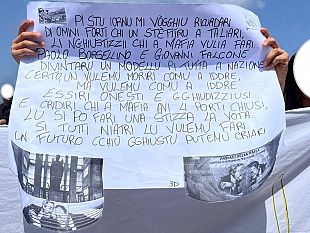 PI STU IORNU MI VOGGHIU RICURDARI
DI OMINI FORTI CHI UN STETTIRU A TALIARI,
LI NGHIUSTIZZII CHI A MAFIA VULIA FARI.
PAOLO BORSELLINO E GIOVANNI FALCONE
DIVINTARU UN MODELLU PI TUTTA A NAZIONE
CERTO UN VULEMU MORIRI COMU A IDDRI,
MA VULEMU COMU A IDDRI,
ESSIRI ONESTI E GGHIUDIZZIUSI
E CRIDIRI CHI A MAFIA AVI LI PORTI CHIUSI,
LU SI PO FARI UNA STIZZA LA VOTA.
SI TUTTI NIATRI LU VULEMU FARI
UN FUTURO CCHIU GGHIUSTU PUTEMU CRIARI
3D